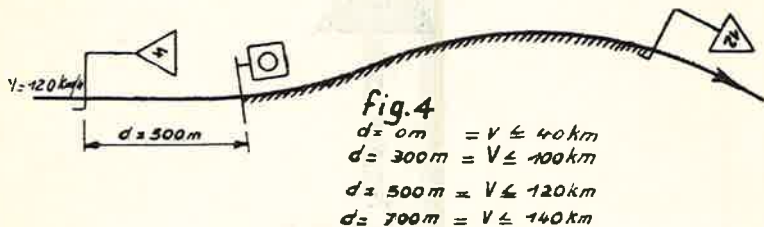 4
12
V = 120 km/h
d = 500m
fig.4
d = 0m = V ≤ 40km
d = 300m = V ≤ 100km
d = 500m = V ≤ 120km
d = 700m = V ≤ 140km